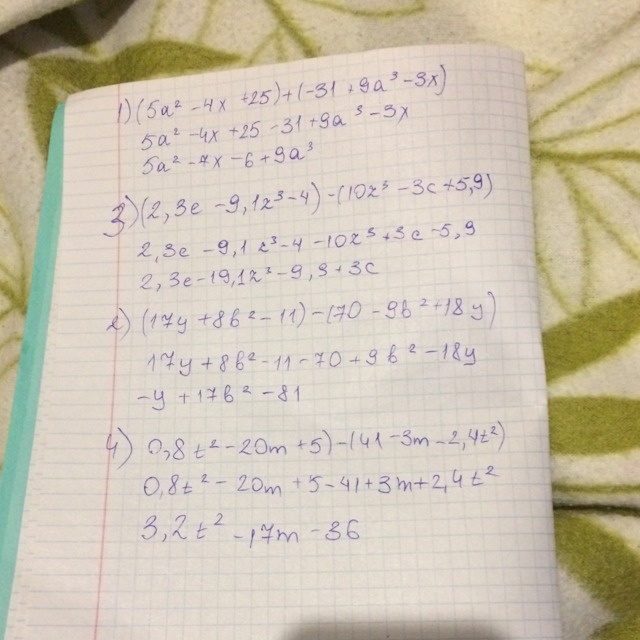 1) (5a² -4x +25)+(-31 +9a³ -3x)
5a² -4x +25 -31 +9a³ -3x
5a² -7x -6 +9a³
3) (2,3c -9,1z³-4) -(10z³ -3c +5,9)
2,3c -9,1z³ -4 -10z³ +3c -5,9
2,3c -19,1z³ -9,9 +3c
2) (17y +8b² -11) -(70 -9b² +18y)
17y +8b² -11 -70 +9b² -18y
-y +17b² -81
4) 0,8t² -20m +5) -(41 -3m -2,4t²)
0,8t² -20m +5 -41 +3m +2,4t²
3,2t² -17m -36